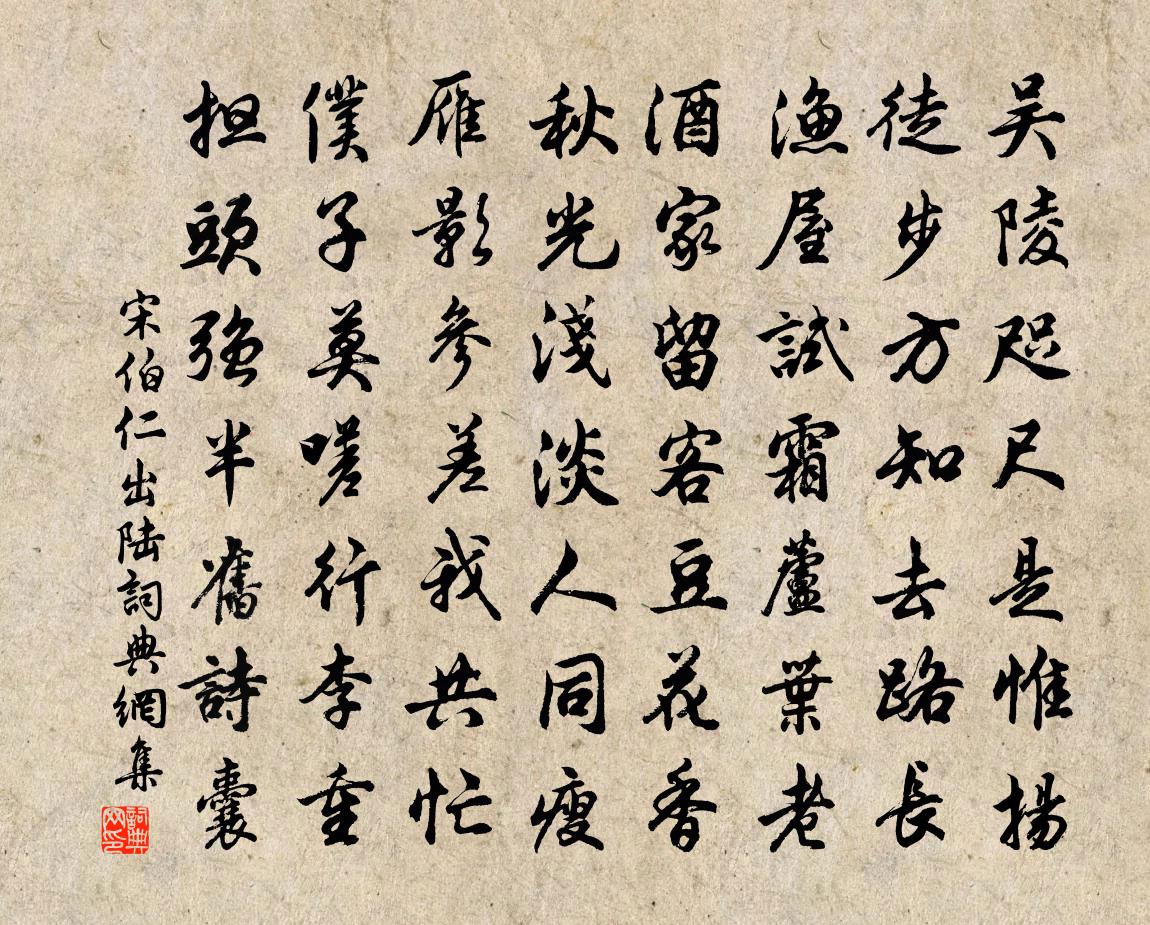 吴陵咫尺是惟揚
徒步方知去路長
漁屋試霜蘆葉老
酒家留客豆花香
秋光淺淡人同瘦
雁影參差我共忙
僕子莫嗟行李重
担頭強半舊詩囊
宋伯仁出陆詞典網集
詞典网印